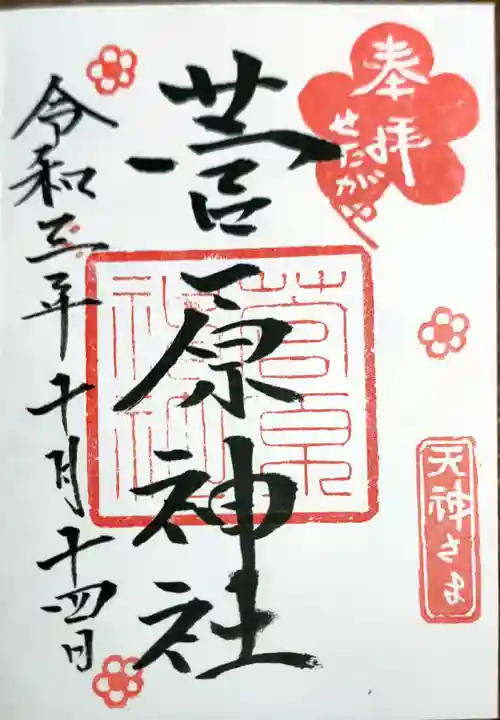 奉拝
せたがや
天神さま
菅原神社
菅原
神社
令和三年十月十四日